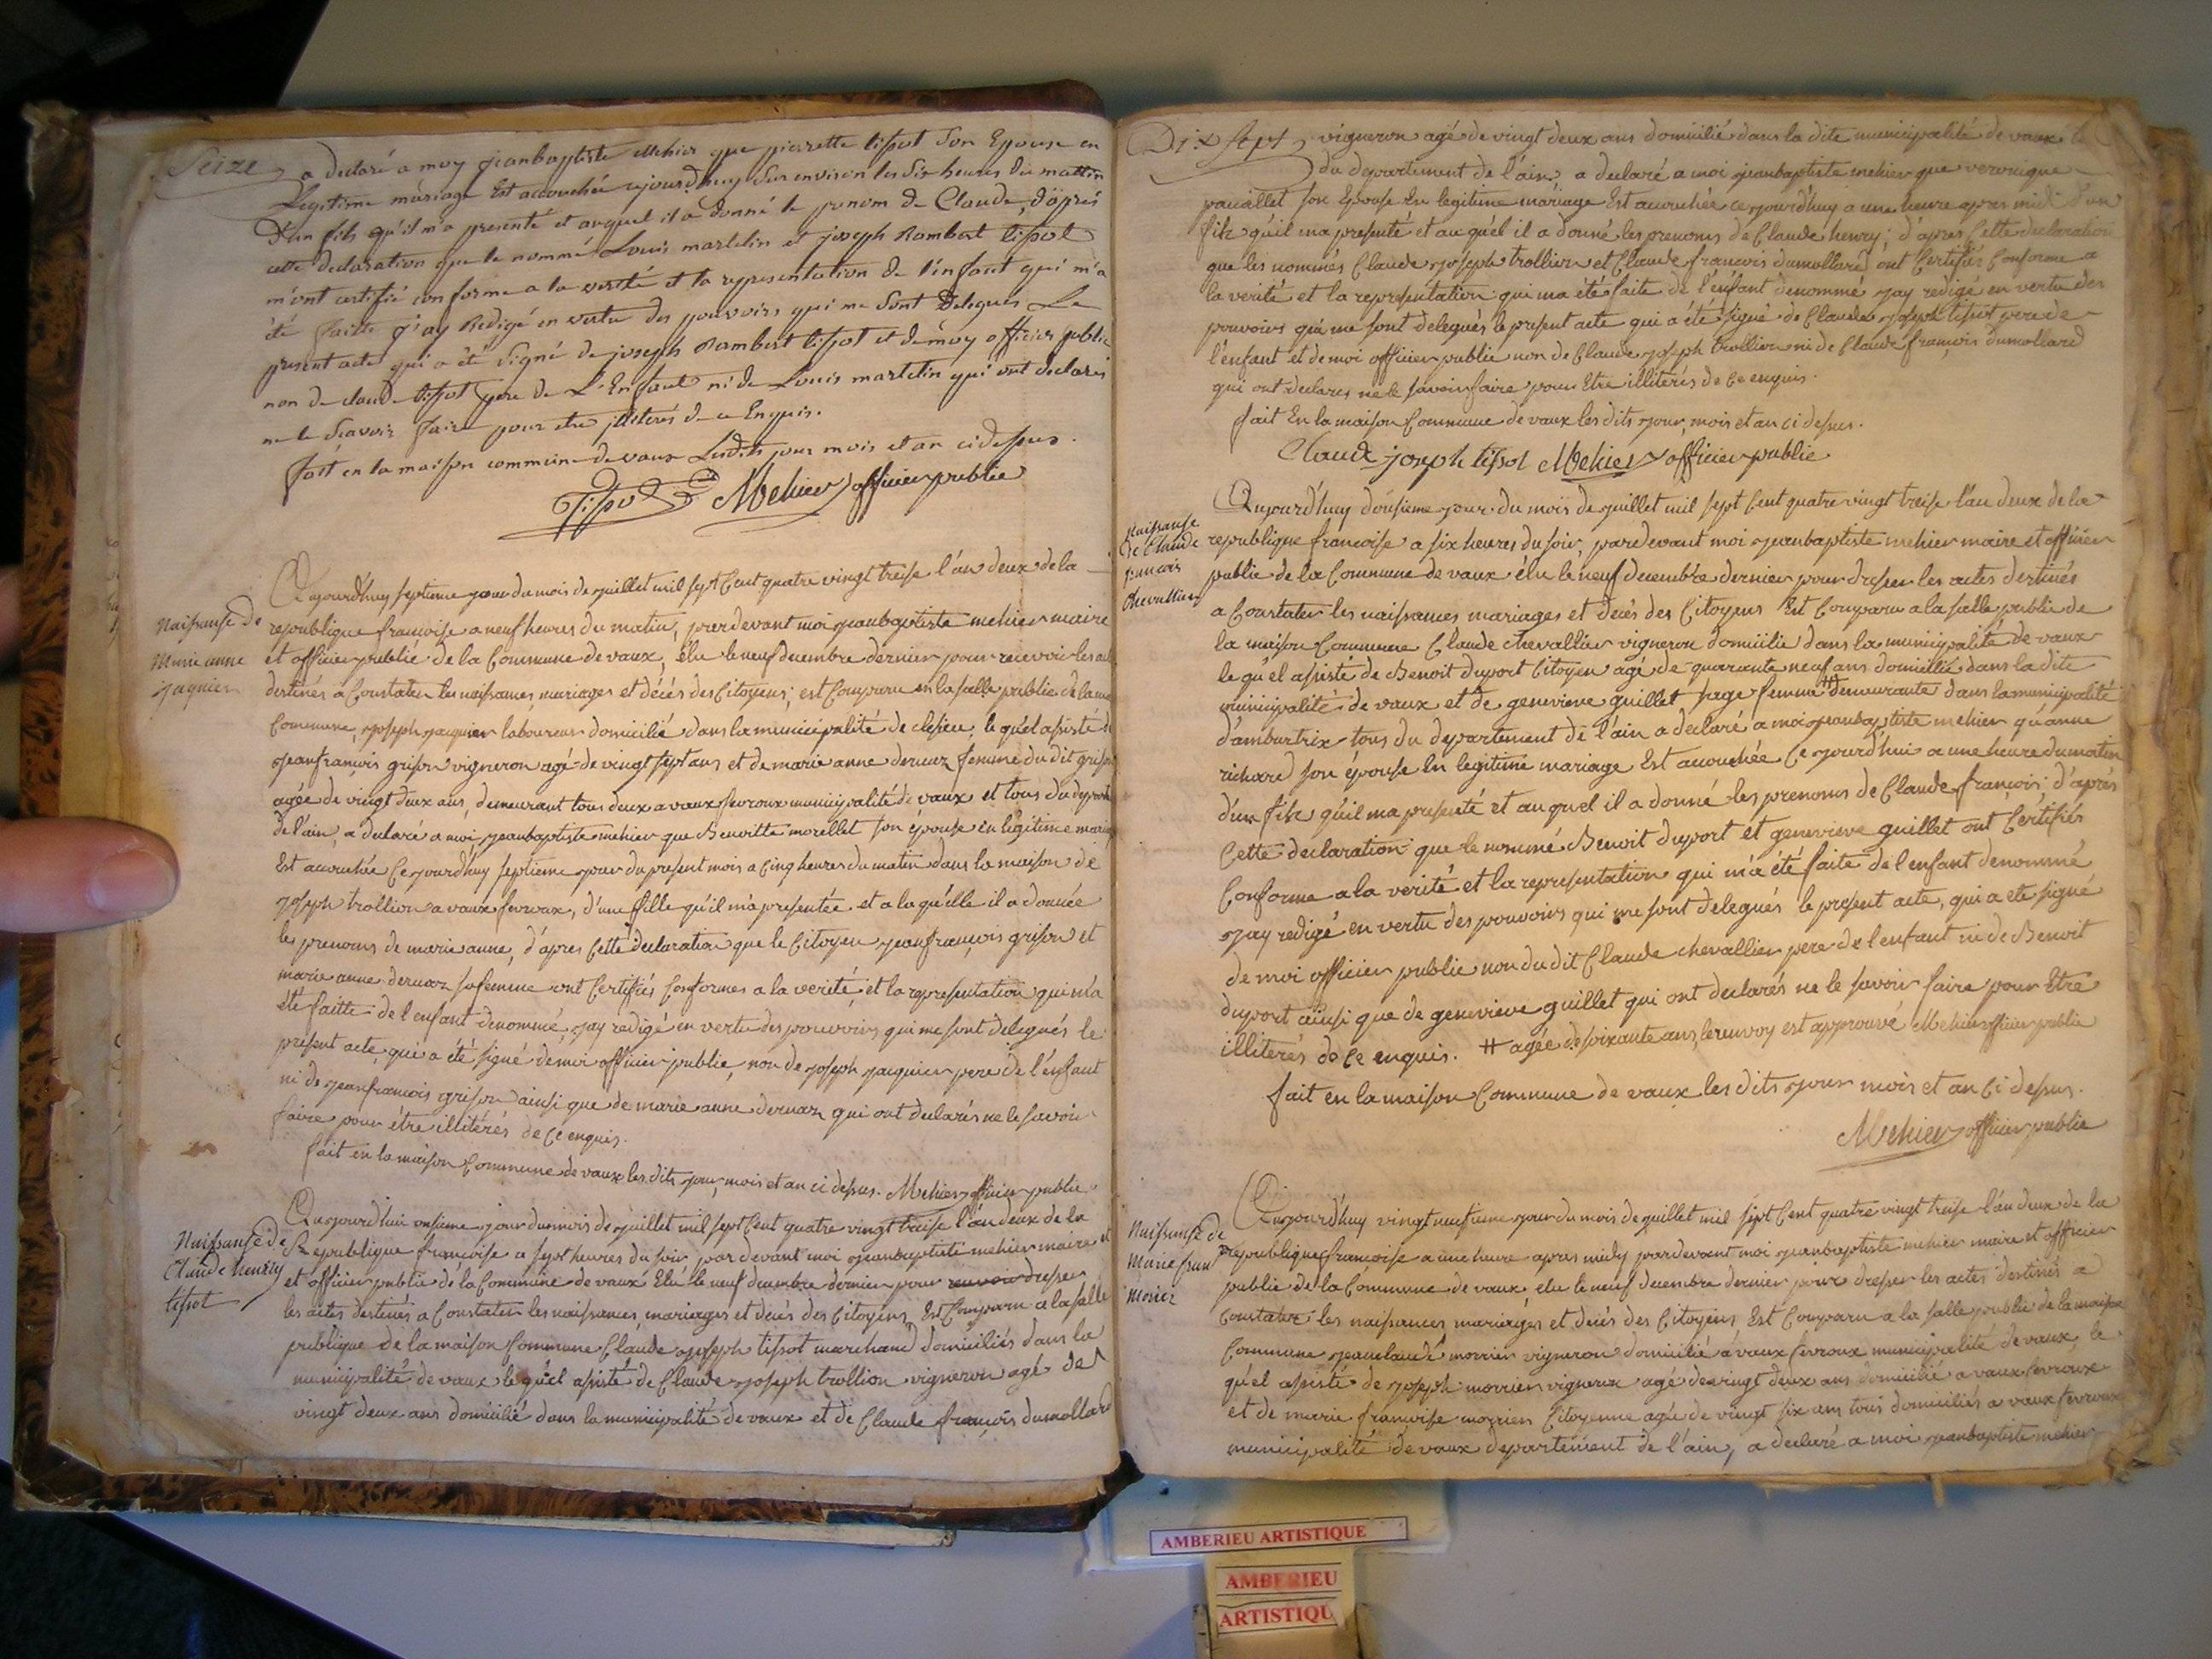 Seize
a declaré a moy jeanbaptiste mehier que pierrette tissot son Epouse en
Legitime mariage Est accouchée ajourd'huy sur environ les dix heures du mattin
D'un fils qu'il m'a presenté et auquel il a donné le prenom de Claude, d'après
cette declaration que le nommé Louis martelin et joseph Rambert tissot
m'ont certifié conforme a la verité et la representation de l'enfant qui m'a
été faitte j'ay Redigé en vertu des pouvoirs qui me sont Delegués Le
present acte qui a été signé de joseph Rambert tissot et de moy officier public
non de claude tissot pere de L'Enfant ni de Louis martelin qui ont declarés
ne le sçavoir faire pour etre illiterés de ce Enquis.
fait en la maison commune de vaux Lesdits jour mois et an cidessus.
Tissot Mehier officier public
Naissanse de
Marie anne
jaquier
Aujourd'huy septieme jour du mois de juillet mil sept Cent quatre vingt treise l'an deux de la
republique françoise a neuf heures du matin, pardevant moi jeanbaptiste mehier maire
et officier public de la Commune de vaux, élu le neuf decembre dernier pour recevoir les
destinés a Constater les naissances, mariages et décés des Citoyens; est Comparu en la salle public de la
Commune, joseph jacquier laboureur domicilié dans la municipalité de clesieu, le quél assisté
jeanfrançois grison vigneron agé de vingt sept ans et de marie anne deruaz femme du dit grison
agée de vingt deux ans, demeurant tous deux a vaux fevroux municipalité de vaux et tous du
de l'ain, a declaré a moi, jeanbaptiste mehier que Benoitte morellet son épouse en légitime
Est accouchée Ce jourd'huy septieme jour du present mois a Cinq heures du matin dans la maison de
joseph trollion a vaux fevroux, d'une fille qu'il m'a presentée et a la quélle il a donnée
les prenoms de marie anne, d'apres Cette declaration que le Citoyen jeanfrançois grison et
marie anne deruaz sa femme ont Certifiés Conformes a la verité, et la representation qui m'a
été faitte de l'enfant denommé, j'ay redigé en vertu des pouvoirs qui me sont delegués le
present acte, qui a été signé de moi officier public, non de joseph jacquier pere de l'enfant
ni de jeanfrancois grison ainsi que de marie anne deruaz qui ont declarés ne le savoir
faire pour être illitérés de Ce enquis.
fait en la maison Commune de vaux les dits jour, mois et an ci dessus. Mehier officier public
Naissanse de
Claude henriy
tissot
Aujourd'hui onsieme jour du mois de juillet mil sept Cent quatre vingt treise l'an deux de la
Republique françoise a sept heures du soir, par devant moi jeanbaptiste mehier maire et
et officier public de la Commune de vaux Elu le neuf decembre dernier pour dresser
les actes destinés a Constater les naissances, mariages et décés des Citoyens, Est Comparu a la salle
publique de la maison Commune Claude joseph tissot marchand domiciliés dans la
municipalité de vaux le quél assisté de Claude joseph trollion vigneron agé de
vingt deux ans domicilié dans la municipalité de vaux et de Claude françois dumollard
Dix sept
vigneron agé de vingt deux ans domicilié dans la dite municipalité de vaux
du departement de l'ain, a declaré a moi jeanbaptiste mehier que veronique
son Epouse En legitime mariage Est accouchée ce jourd'huy a une heure apres midi d'un
fils qu'il ma presenté et au quél il a donné les prenoms de Claude henry; d'apres Cette declaration
que les nommés Claude joseph trollion et Claude francois dumollard ont Certifiés Conforme a
la verité et la representation qui ma été faite de l'énfant denommé jay redigé en vertu des
pouvoirs qui me sont delegués le present acte qui a été signé de Claude joseph tissot pere de
l'enfant et de moi officier public non de Claude joseph trollion ni de Claude françois dumollard
qui ont declarés ne le savoir faire pour Etre illiterés de Ce enquis.
fait En la maison Commune de vaux les dits jour, mois et an ci dessus.
Claude joseph tissot Mehier officier public
Naissanse
de Claude
francois
Chevallier
Aujourd'huy dousieme jour du mois de juillet mil sept Cent quatre vingt treise l'an deux de la
republique francoise a six heures du soir, pardevant moi jeanbaptiste mehier maire et officier
public de la Commune de vaux élu le neuf decembre dernier pour dresser les actes destinés
a Constater les naissances mariages et décés des Citoyens Est Comparu a la salle public de
la maison Commune Claude chevallier vigneron domicilie dans la municipalité de vaux
le quél assisté de Benoit duport Citoyen agé de quarante neuf ans domicilié dans la dite
municipalité de vaux et de genevieve guillet sage femme # demeurante dans la municipalité
d'ambutrix tous du departement de l'ain a declaré a moi jeanbaptiste mehier qu'anne
richard son épouse En legitime mariage Est accouchée Ce jourd'hui a une heure du matin
d'un fils qu'il ma presenté et au quel il a donné les prenoms de Claude françois; d'après
Cette declaration que le nommé Benoit duport et genevieve guillet ont Cértifiés
Conforme a la verité et la representation qui m'a été faite de l'enfant denommé
jay redigé en vertu des pouvoirs qui me sont delegués le present acte, qui a eté signé
de moi officier public non du dit Claude chevallier pere de l'enfant ni de Benoit
duport ainsi que de genevieve guillet qui ont declarés ne le savoir faire pour Etre
illiterés de Ce enquis. # agée de soixante ans, le renvoy est approuvé Mehier officier public
fait en la maison Commune de vaux les dits jour mois et an Ci dessus.
Mehier officier public
Naissanse de
Marie fran
Morier
Aujourd'huy vingt neufieme jour du mois de juillet mil sept Cent quatre vingt treise l'an deux de la
republique francoise a une heure apres midy pardevant moi jeanbaptiste mehier maire et officier
public de la Commune de vaux, elu le neuf decembre dernier pour dresser les actes destinés a
Constater les naissances, mariages et décés des Citoyens Est Comparu a la salle public de la maison
Commune jeanclaude morrier vigneron domicilié a vaux fevroux municipalité de vaux, le
quél assisté de joseph morrier vigneron agé de vingt deux ans domicilié a vaux fevroux
et de marie françoise morrier Citoyenne agée de vingt six ans tous domiciliés a vaux fevroux
municipalité de vaux departement de l'ain, a declaré a moi jeanbaptiste mehier
AMBERIEU ARTISTIQUE
AMBERIEU
ARTISTIQU